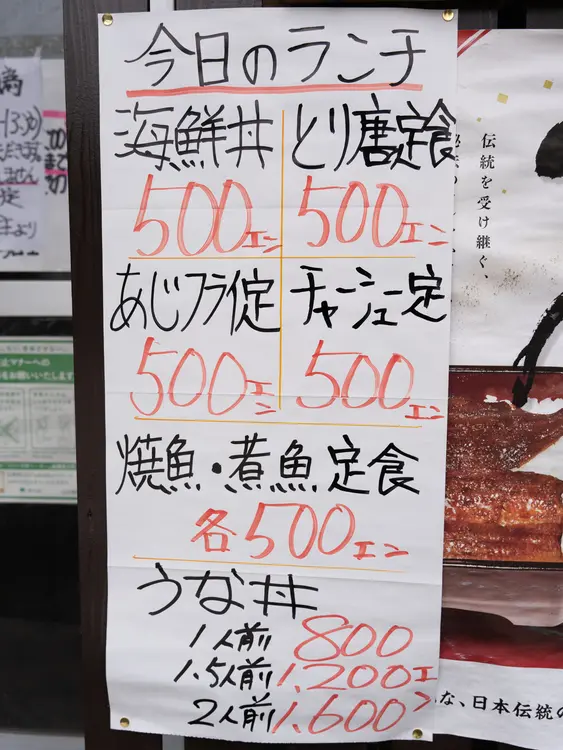 今日のランチ
海鮮丼 とり唐定食
500エン 500エン
あじフライ定 チャーシュー定
500エン 500エン
焼魚・煮魚定食
各500エン
うな丼
1人前 800
1.5人前 1.200エン
2人前 1.600
伝統を受け継ぐ、
な、日本伝統の